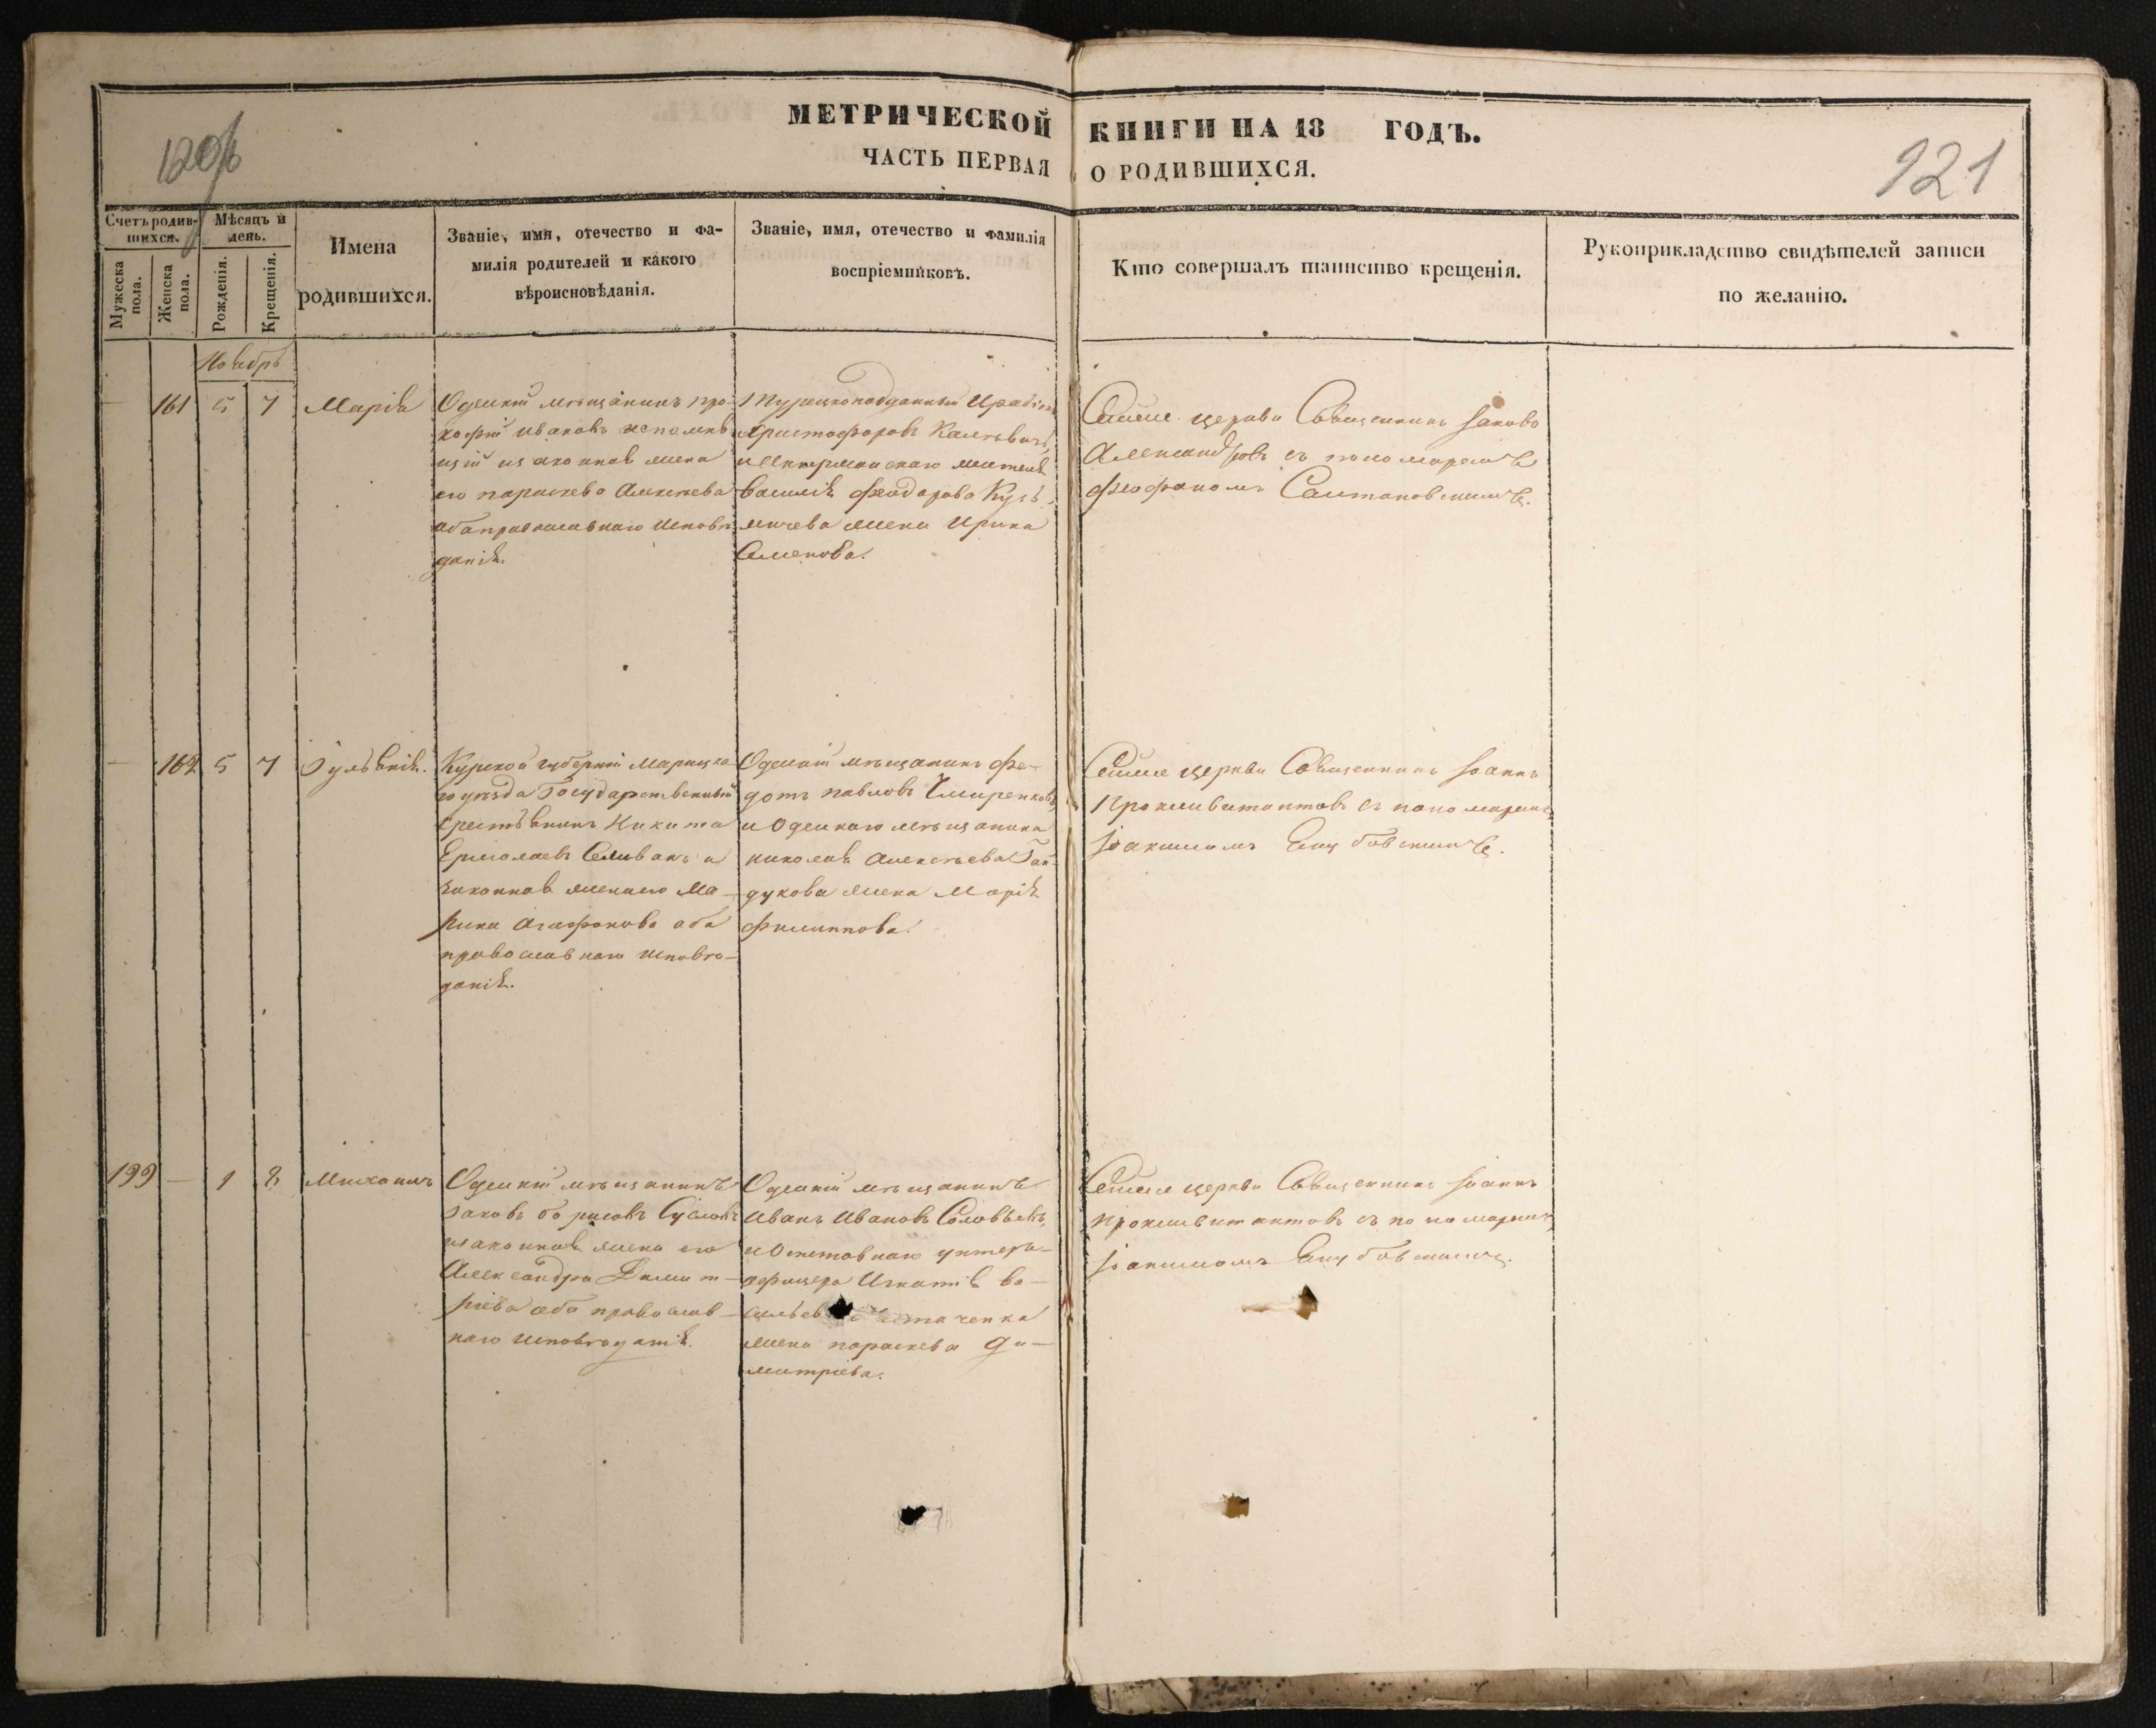 МЕТРИЧЕСКОЙ КНИГИ НА 18 ГОДЪ.
ЧАСТЬ ПЕРВАЯ О РОДИВШИХСЯ.
921
Счетъ родив-
шихся.
Мужеска
пола.
Женска
пола.
Мѣсяцъ и
день.
Рожденія.
Крещенія.
Имена
родившихся.
Званіе, имя, отечество и фа-
милія родителей и какого
вѣроисновѣданія.
Званіе, имя, отечество и фамилія
воспріемниковъ.
Кто совершалъ таинство крещенія.
Рукоприкладство свидѣтелей записи
по желанію.
Ноябрь
161 5 7 Марія
Одескій мѣщанинъ про-
кофій Ивановъ
и законная жена
его параскева Алексеева
оба православнаго исповѣ
данія.
Турецкоподданный
Христофоровъ
и Акерманскаго жителя
василія феодорова Кузь-
мичева жена Ирина
Семенова.
Сейже церкви Священникъ Іаковъ
Александровъ съ пономаремъ
феофаномъ
162 5 7 Гуліанія.
Курской губерніи
го уѣзда Государственный
крестьянинъ Никита
Ермолаевъ Селиванъ и
законная жена его Ма-
рина Агафонова оба
православнаго исповѣ-
данія.
Одескій мѣщанинъ фе-
дотъ павловъ
и Одескаго мѣщанина
николая Алексѣева
дукова жена Марія
филиппова.
Сейже церкви Священникъ Іоаннъ
съ пономаремъ
Іоакимомъ
199 — 1 8 Михаилъ
Одескій мѣщанинъ
Іаковъ борисовъ Сусловъ
и законная жена его
Александра Димит-
ріева оба православ-
наго исповѣданія.
Одескій мѣщанинъ
Иванъ Ивановъ Соловьевъ,
и Отставнаго унтеръ-
офицера Игнатія ва-
сильев
жена параскева Ди-
митріева.
Сейже церкви Священникъ Іоаннъ
съ пономаремъ
Іоакимомъ